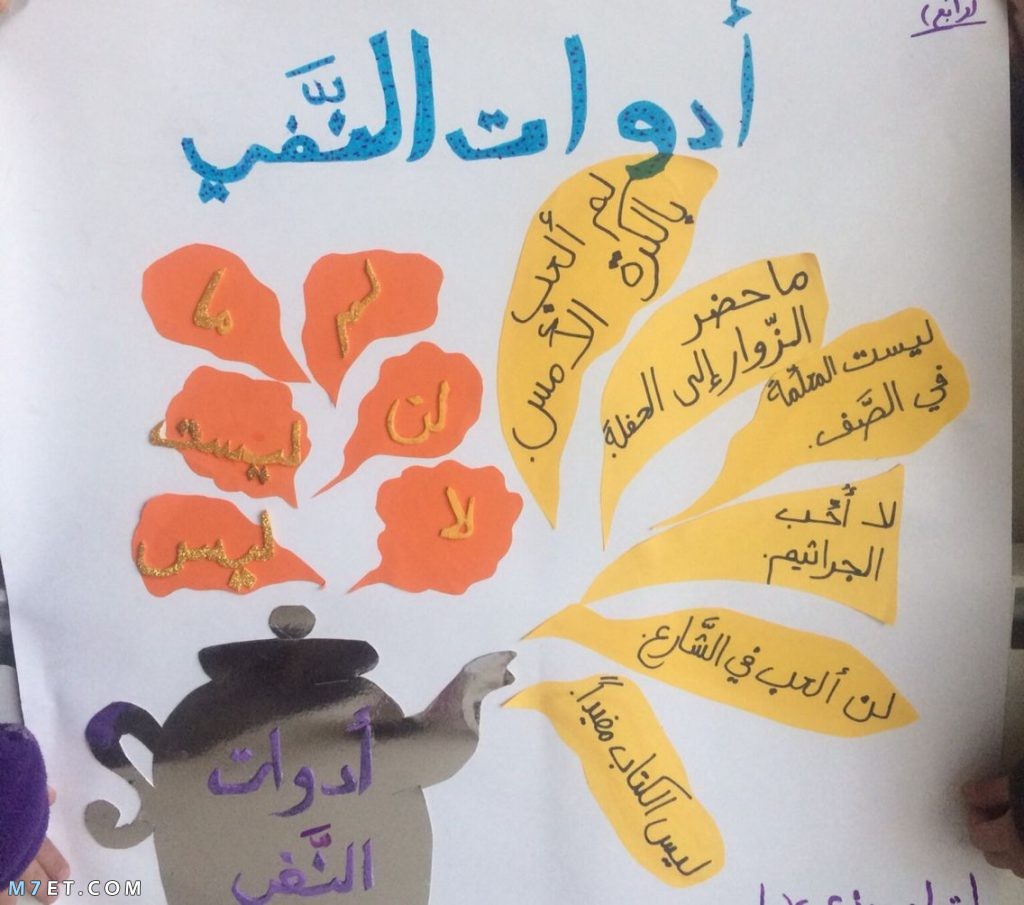 أدوات النَّفي
لم
ما
لن
ليست
لا
ليس
لم ألعب
بالكرة
الأمس.
ما حضر
الزّوار إلى الحفلة.
ليست المعلّمة
في الصَّف.
لا أُحّب
الجراثيم.
لن ألعب في الشَّارع.
ليس الكتاب مفيداً.
أدوات
النَّفي
M7ET.COM